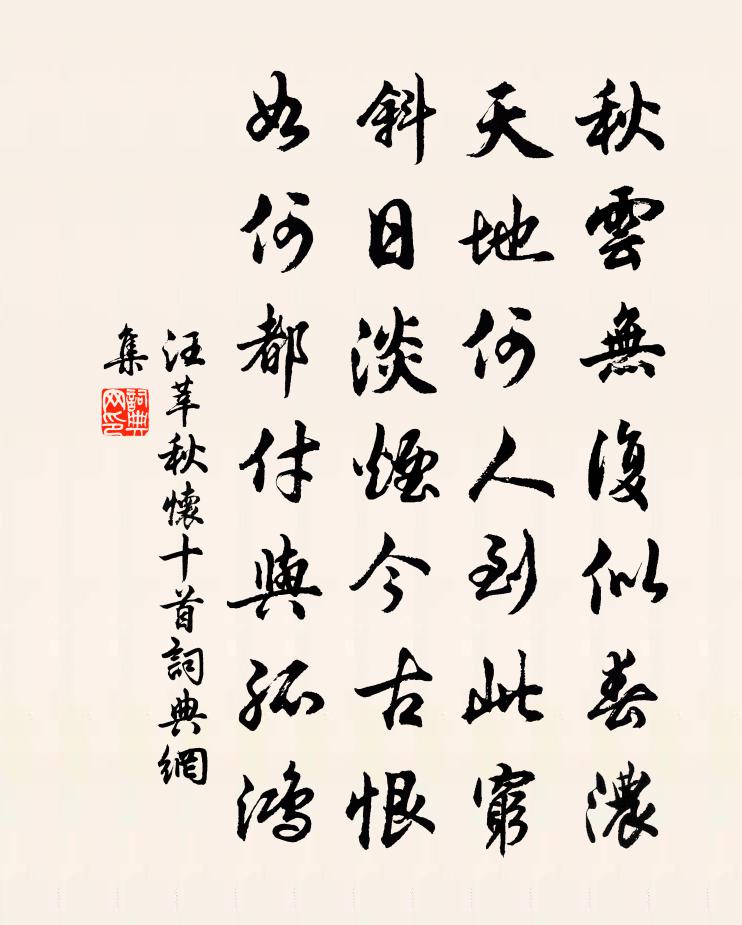 秋雲無復似春濃
天地何人到此窮
斜日淡煙今古恨
如何都付與孤鴻
汪莘秋懷十首詞典網
集
詞典
网印